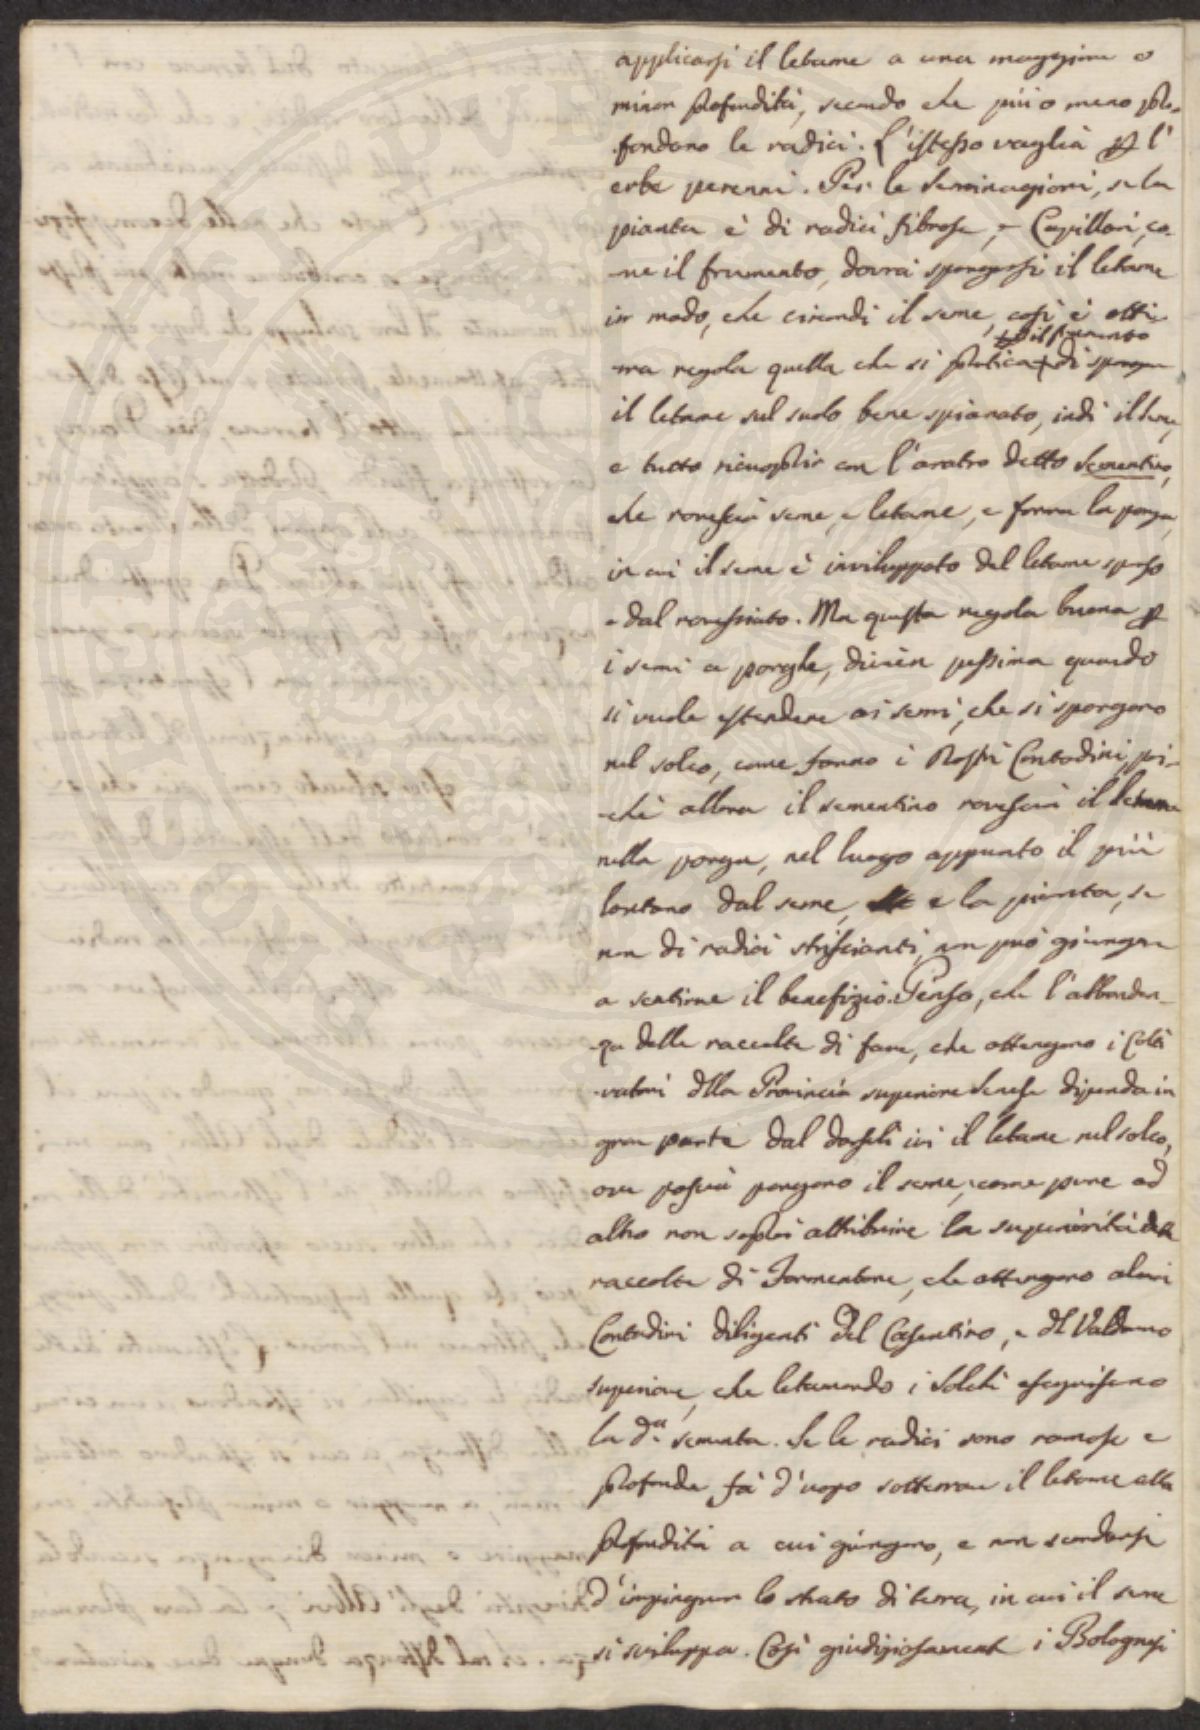 applicarsi il letame a una maggiore o
minor profondità, secondo che più o meno pro-
fondano le radici. L'istesso vaglia p l'
erbe perenni. Per le seminagioni, se la
pianta è di radici fibrose, e Capillari, co-
me il frumento, dovrà spargersi il letame
in modo, che circondi il seme, così è otti-
p il frumento
ma regola quella che si pratica + di spargere
il letame sul suolo bene spianato, indi il seme,
e tutto ricuoprir con l'aratro detto sementino,
che rovescia seme, e letame, e forma la porca,
in cui il seme è inviluppato dal letame sparso
e dal rovesciato. Ma questa regola buona p
i semi a porche, divien pessima quando
si vuole estendere ai semi, che si spargono
nel solco, come fanno i Nostri Contadini, poi-
chè allora il sementino rovescia il letame
nella porca, nel luogo appunto il più
lontano dal seme, e la pianta, se
non di radici striscianti, non può giungere
a sentirne il benefizio. Penso, che l'abbondan-
za delle raccolte di fave, che ottengono i Colti-
vatori dlla Provincia superiore Senese dipenda in
gran parte dal darsili ivi il letame nel solco,
ove poscia pongono il seme, come pure ad
altro non saprei attribuire la superiorità delle
raccolte di Formentone, che ottengono alcuni
Contadini diligenti del Casentino, e dl Valdarno
superiore, che letamando i solchi eseguiscono
la d.a sementa. Se le radici sono ramose e
profonde fà d'uopo sotterrare il letame alla
profondità a cui giungono, e non scordarsi
d'impinguare lo strato di terra, in cui il seme
si sviluppa. Così giudiziosamente i Bolognesi